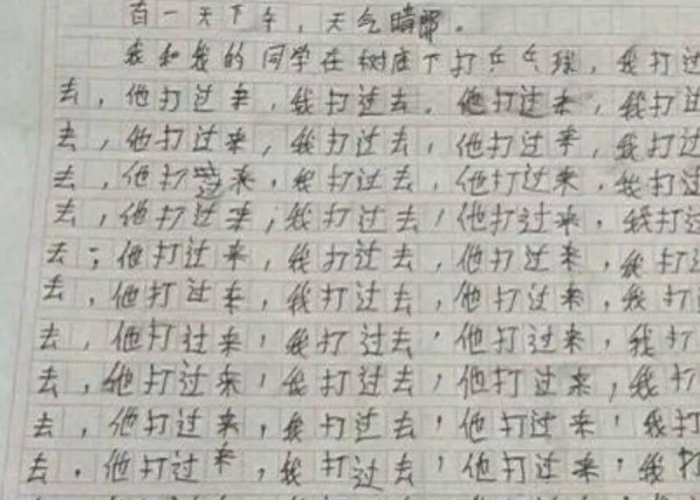 有一天下午，天气晴朗。
我和我的同学在树底下打乒乓球，我打过
去，他打过来，我打过去，他打过来，我打过
去，他打过来，我打过去，他打过来，我打过
去，他打过来，我打过去，他打过来，我打过
去，他打过来，我打过去，他打过来，我打过
去，他打过来，我打过去，他打过来，我打
去，他打过来，我打过去，他打过来，我打
去，他打过来，我打过去，他打过来，我打
去，他打过来，我打过去，他打过来，我打
去，他打过来，我打过去，他打过来，我打
去，他打过来，我打过去，他打过来，我打